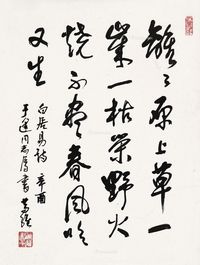 離〻原上草一
歲一枯榮野火
燒不盡春風吹
又生
白居易詩 辛酉
同志屬書